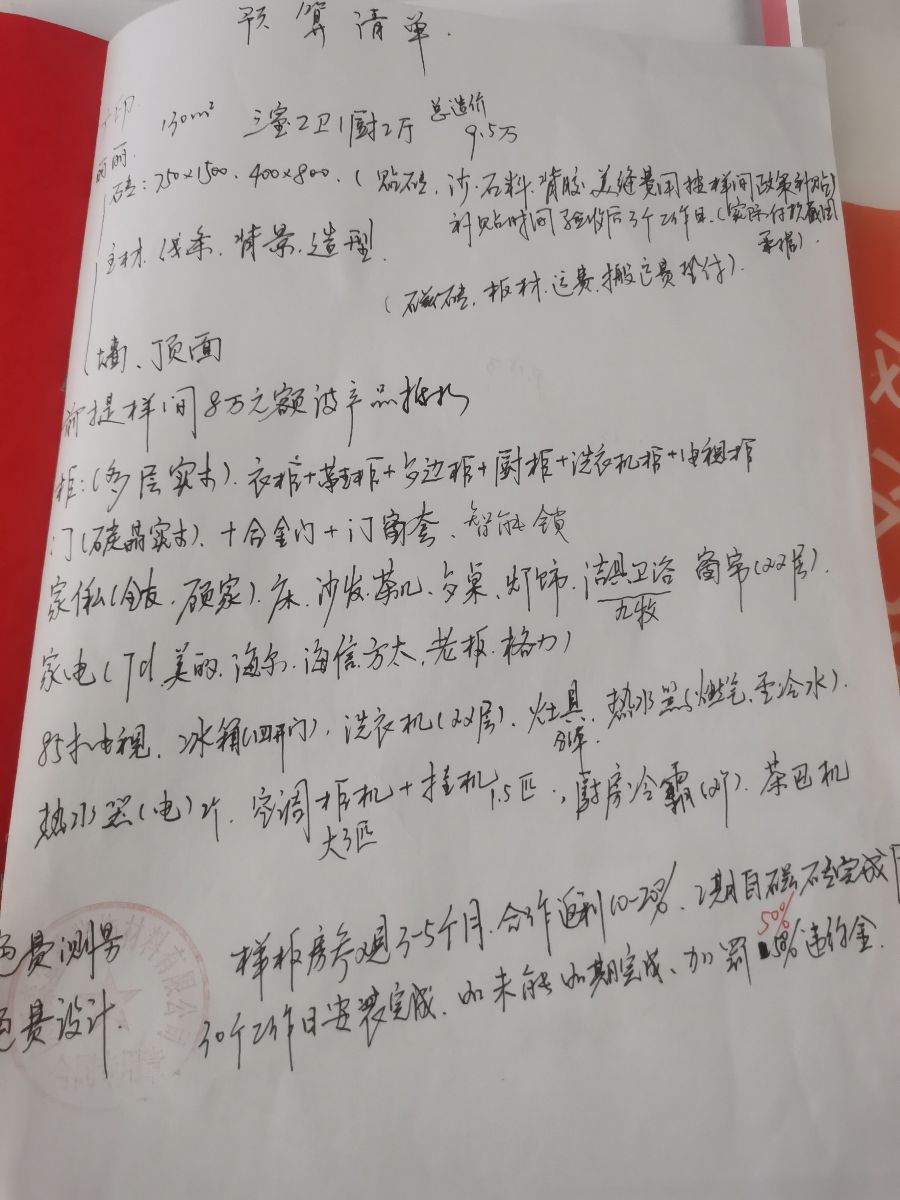 预算清单.
130m² 三室2卫1厨2厅 总造价
9.5万
砖: 750x1500. 400x800. (贴砖. 沙.石料.背胶.美缝费用按样间政策补贴)
补贴时间验收后3个工作日.(实际付款截图
票据).
主材. 线条. 背景. 造型.
(磁砖. 板材. 运费. 搬运费垫付).
墙、顶面
前提样间8万元额波产品
柜:(多层实木). 衣柜+鞋柜+夕边柜+厨柜+洗衣机柜+电视柜
门(碳晶实木). 十合金门+门窗套、智能锁
家俬(全友. 顾家). 床. 沙发. 茶几、夕桌. 灯饰. 洁具卫浴 窗帘(22层).
九牧
家电(Tcl.美的. 海尔. 海信.方太.老板.格力)
85寸电视. 冰箱(四开门), 洗衣机(22层). 灶具. 热水器(燃气.零冷水).
热水器(电)2个. 空调柜机+挂机1.5匹., 厨房冷霸(2个). 茶巴机
大3匹
样板房参观3-5个月. 合作返利10-20%. 工期自磁砖完成
免费测男 30个工作日安装完成. 如未能如期完成、加罚5%违约金.
50%
免费设计.
材料有限公司